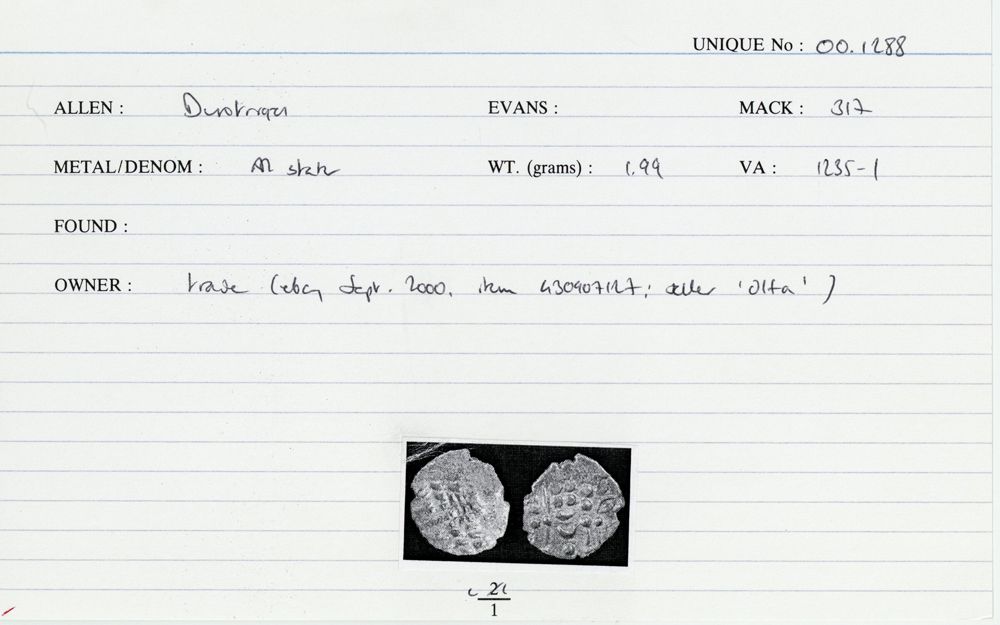 UNIQUE No : 00.1288
ALLEN : Durotrigan EVANS : MACK : 317
METAL/DENOM : AR stater WT. (grams) : 1.99 VA : 1235-1
FOUND :
OWNER : trade (ebay Sept. 2000, item 430907127; seller 'olfa')
1